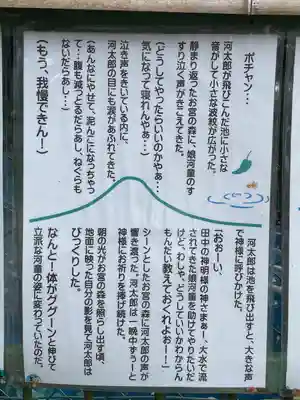 ポチャン…
河太郎が飛びこんだ池に小さな
音がして小さな波紋が広がった。
静まり返ったお宮の森に、娘河童のす
すり泣く声がきこえてきた。
(どうしてやったらいいのかやぁ…
気になって寝れんやぁ…)
泣き声をきいている内に、
河太郎の目にも涙があふれてきた。
(あんなにやせて、泥んこになっちゃっ
て…腹も減っとるだらあし、ねぐらも
ないだらあし…)
(もう、我慢できんー)
河太郎は池を飛び出すと、大きな声
で神様に呼びかけた。
「おおーい、
田中の神明様の神さまぁー、大水で流
されてきた娘河童を助けてやりたいだ
けど、わしゃ、どうしていいかわからん
もんだい教えておくれよおー!」
シーンとしたお宮の森に河太郎の声が
響き渡った。河太郎は一晩中ずうーと
神様にお祈りを捧げ続けた。
朝の光がお宮の森を照らし出す頃、
地面に映った自分の影を見て河太郎は
びっくりした。
なんと!体がググーンと伸びて
立派な河童の姿に変わっていたのだ。